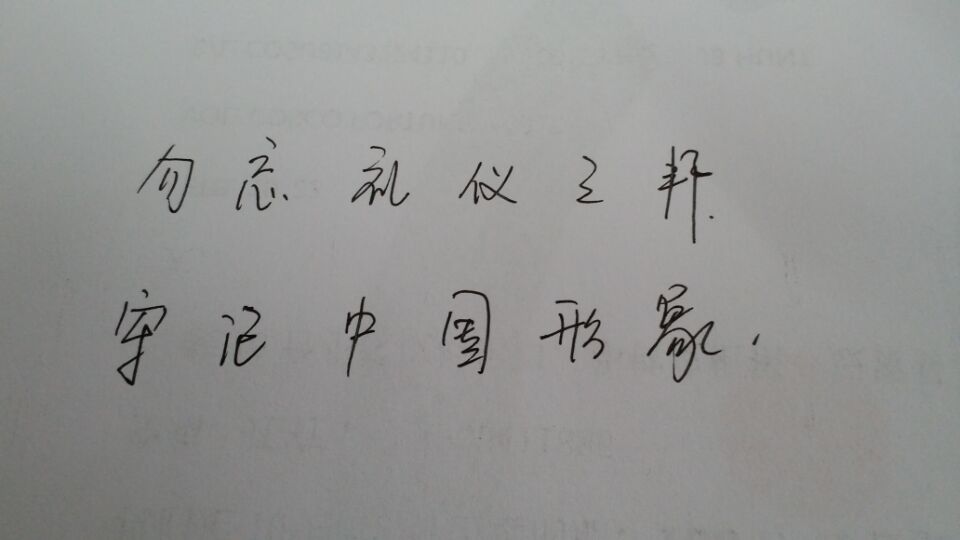 勿忘礼仪之邦.
牢记中国形象.